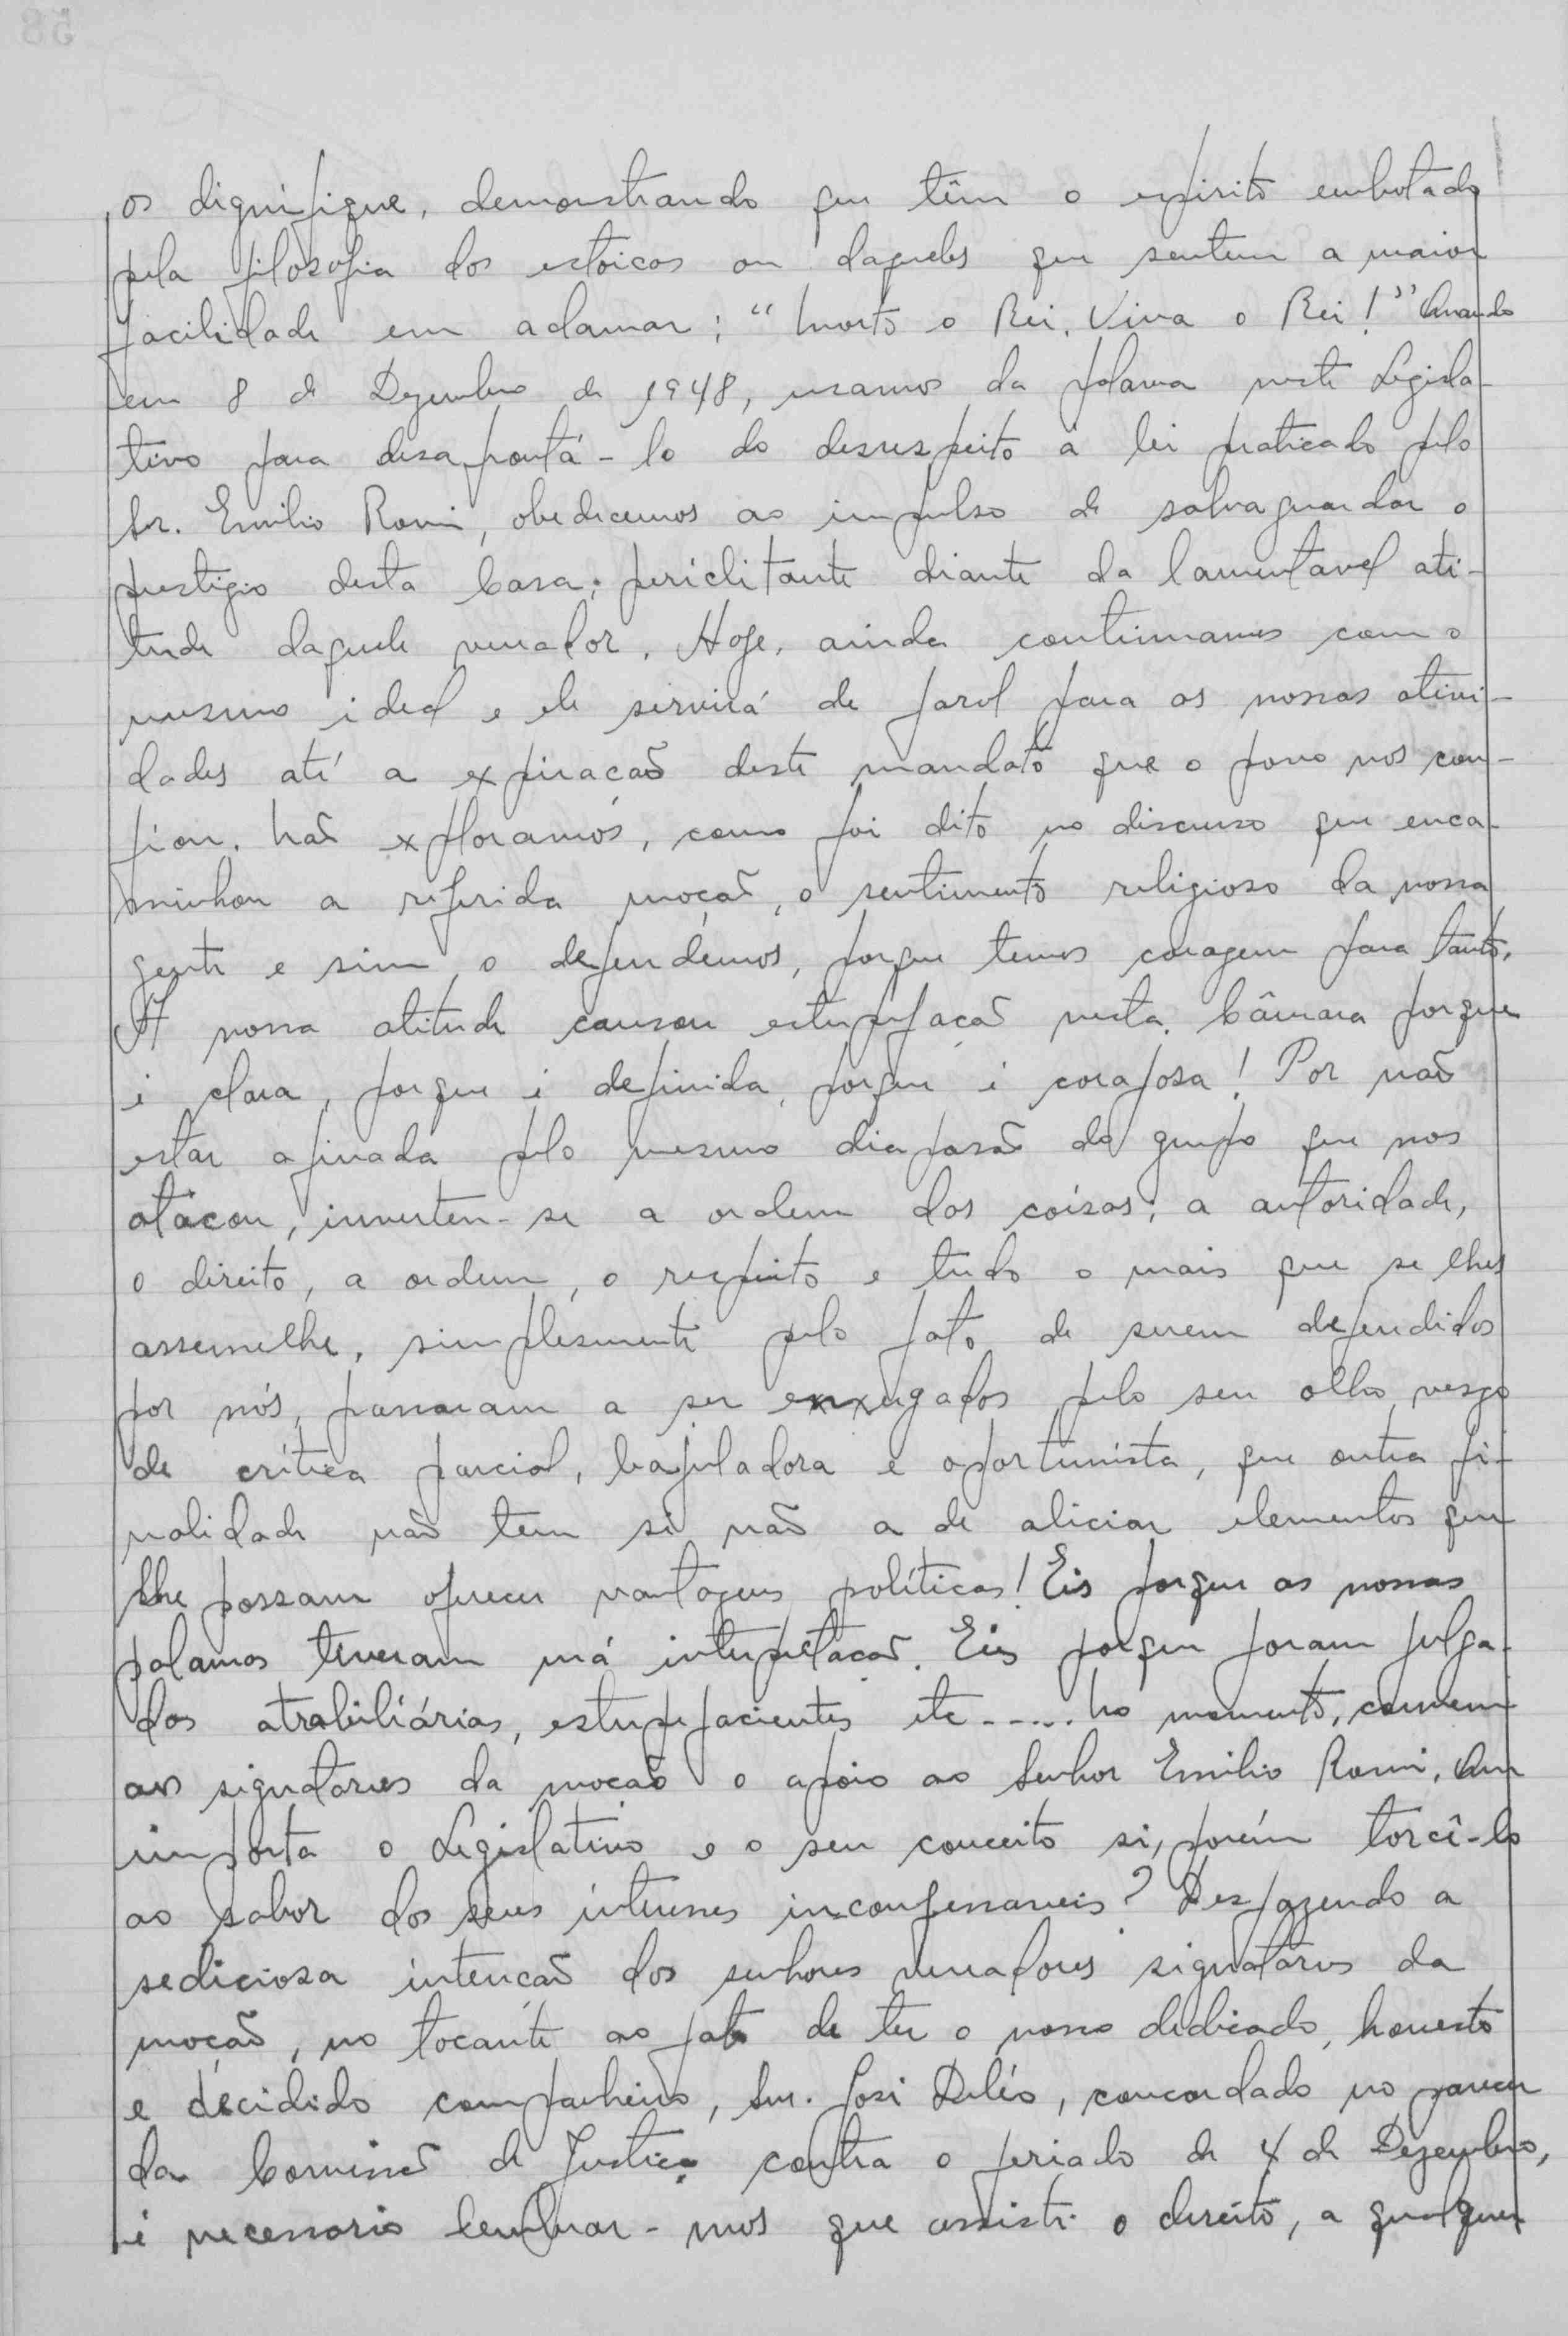 os dignifique, demonstrando que têm o espirito embotado
pela filosofia dos estoicos ou daqueles que sentem a maior
facilidade em aclamar: "Morto o Rei, Viva o Rei!" Quando
em 8 de Dezembro de 1948, usamos da palavra neste Legisla-
tivo para desapontá-lo do desrespeito á lei praticado pelo
Sr. Emilio Romi, obedecemos ao impulso de salvaguardar o
prestigio desta Casa, periclitante diante da lamentavel ati-
tude daquele vereador. Hoje, ainda continuamos com o
mesmo ideal e ele servirá de farol para as nossas ativi-
dades até a expiracaõ deste mandato que o povo nos con-
fiou. Naõ exploramos, como foi dito no discurso que enca-
minhou a referida moçaõ, o sentimento religioso da nossa
gente e sim o defendêmos, porque temos coragem para tanto.
A nossa atitude causou estupefaçaõ nesta Câmara porque
é clara, porque é definida, porque é corajosa! Por naõ
estar afinada pelo mesmo diapasaõ do grupo que nos
atacou, inverteu-se a ordem das coisas; a autoridade,
o direito, a ordem, o respeito e tudo o mais que se lhes
assemelhe, simplesmente pelo fato de serem defendidos
por nós, passaram a ser enxergados pelo seu olho vesgo
de crítica parcial, bajuladora e oportunista, que outra fi-
nalidade naõ tem si naõ a de aliciar elementos que
lhe possam oferecer vantagens políticas! Eis porque as nossas
palavras tiveram má interpretaçaõ. Eis porque foram julga-
das atrabiliárias, estupefacientes etc..... No momento, convem
aos signatarios da moçaõ o apoio ao Senhor Emilio Romi. Que
importa o Legislativo e o seu conceito si, porém torcê-lo
ao sabor dos seus interesses inconfessaveis? Desfazendo a
sediciosa intencaõ dos senhores vereadores signatarios da
moçaõ, no tocante ao fato de ter o nosso dedicado, honesto
e decidido companheiro, Snr. José Deléo, concordado no parecer
da Comissaõ de Justiça contra o feriado de 4 de Dezembro,
é necessario lembrar-mos que assiste o direito, a qualquer